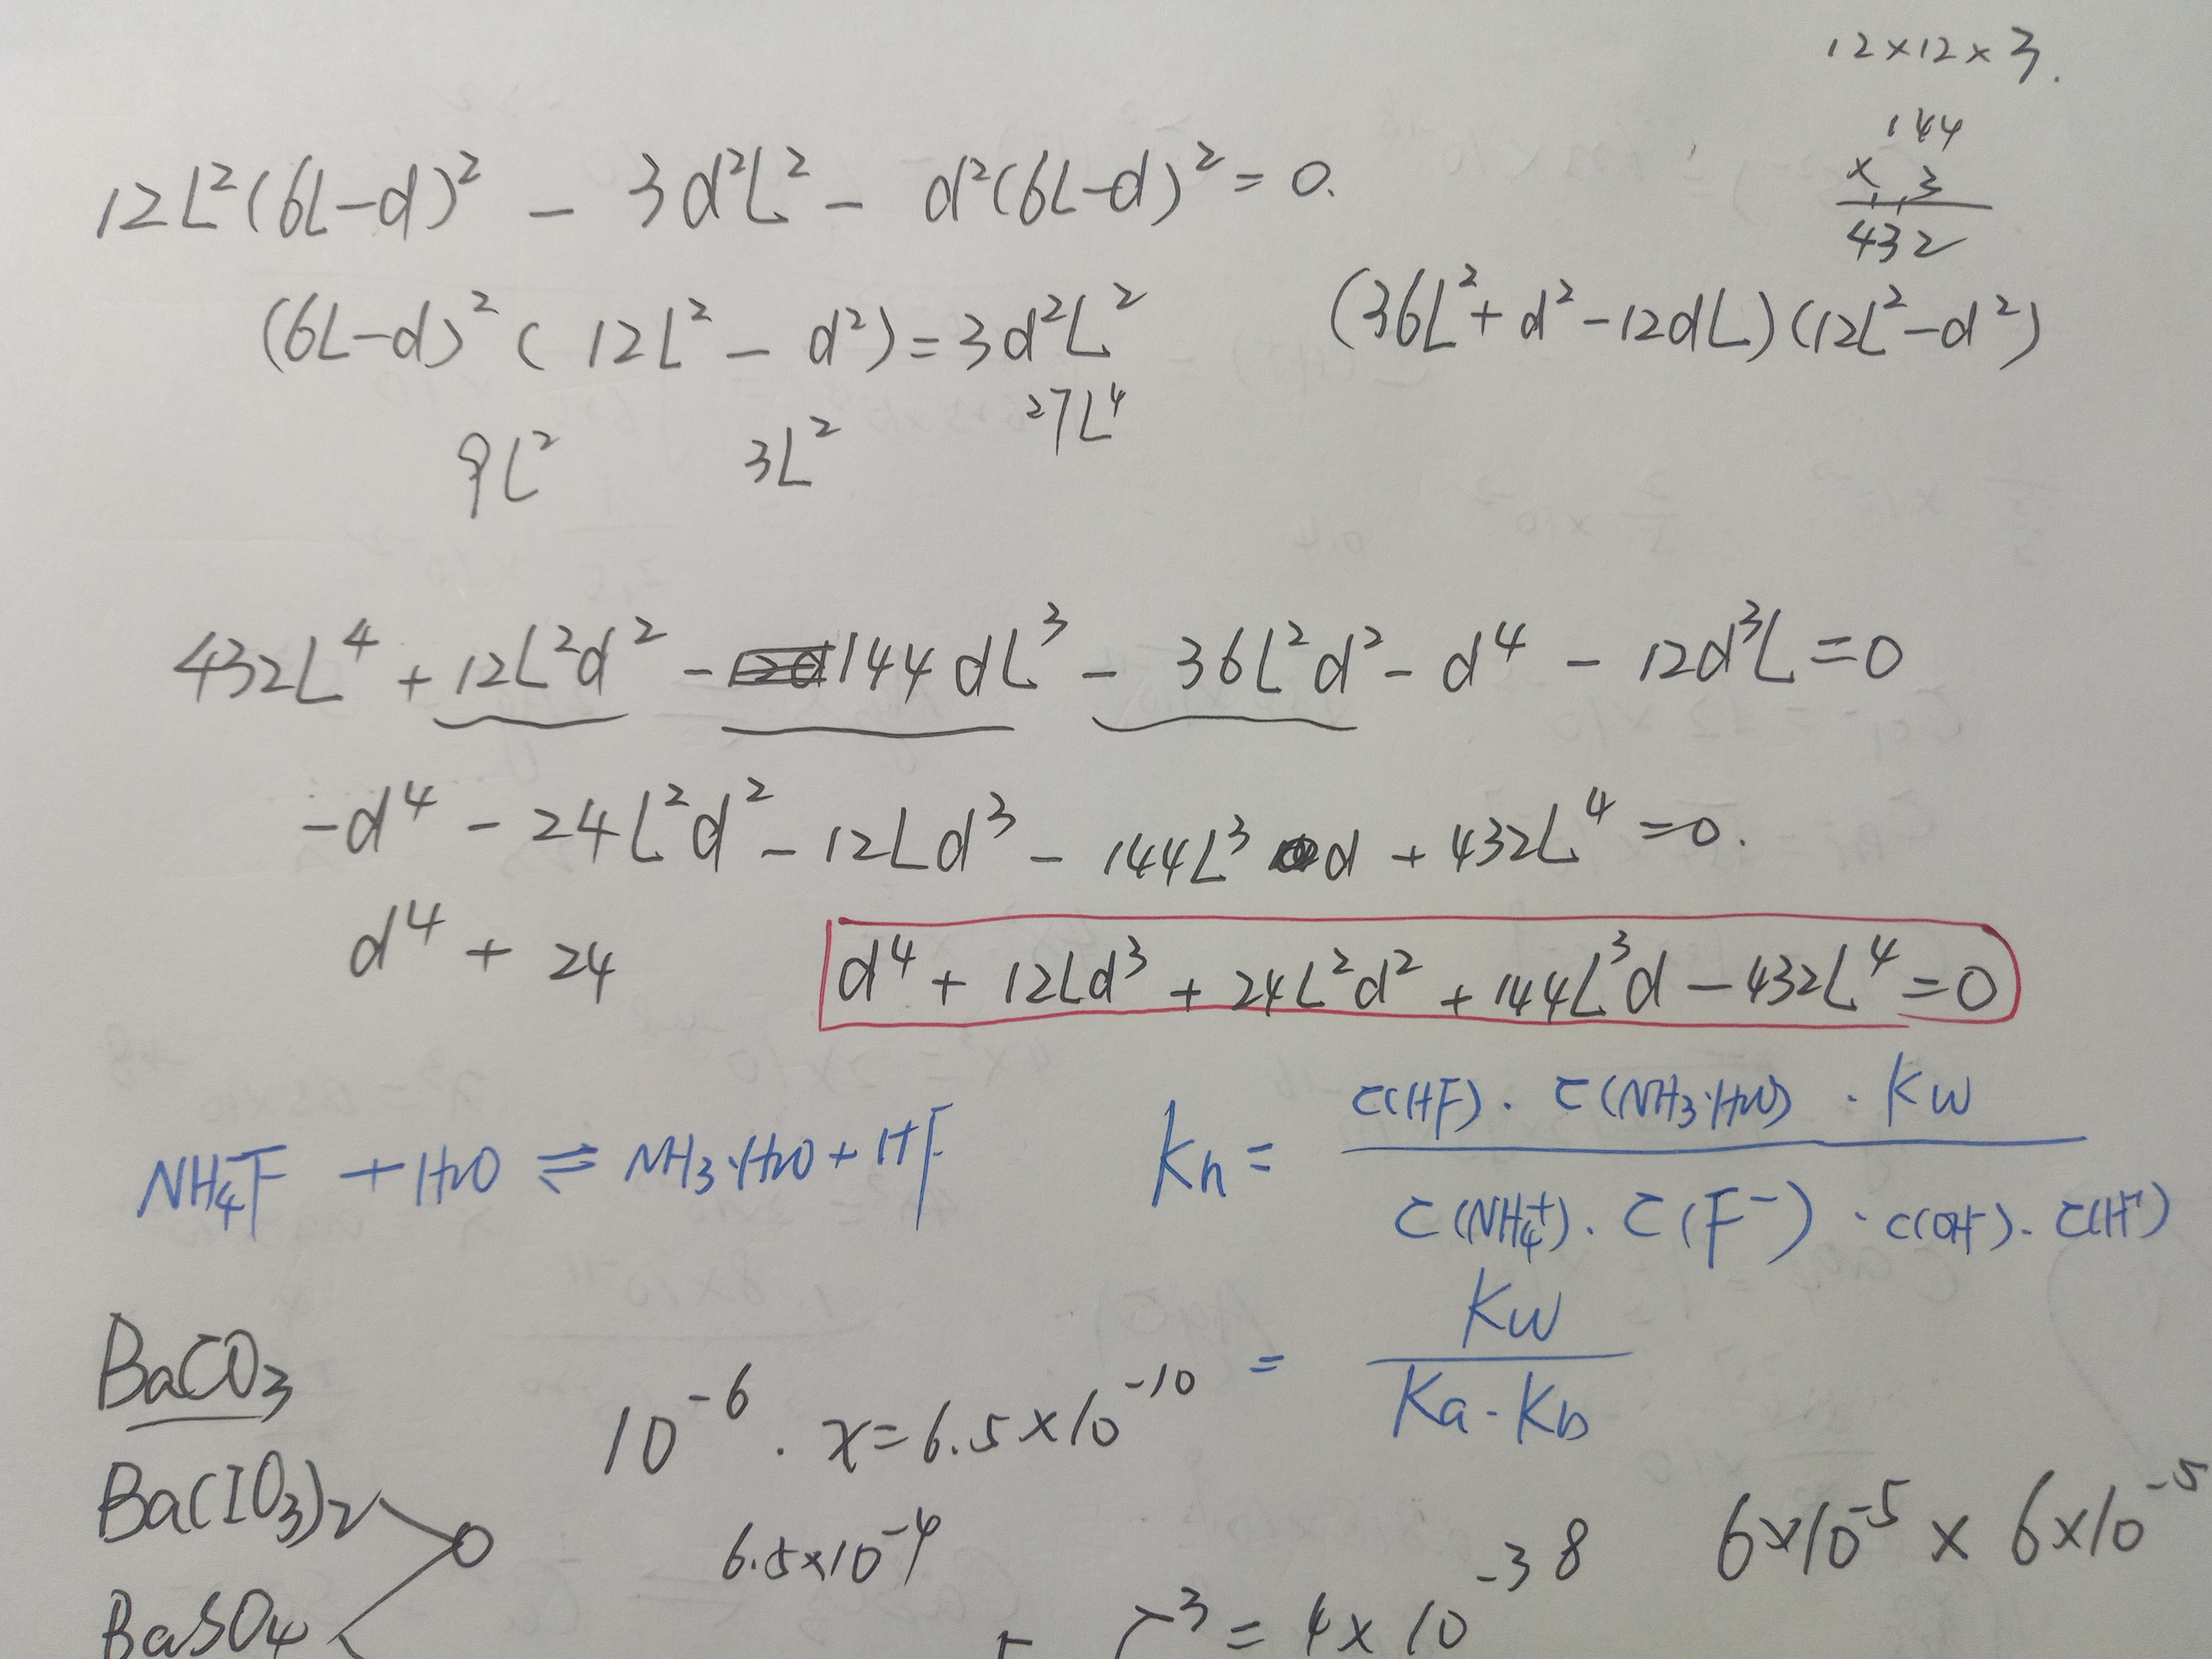 12×12×3.
144
× 3
432
12L²(6L-d)² - 3d²L² - d²(6L-d)² = 0.
(6L-d)² (12L² - d²) = 3d²L²
(36L²+d²-12dL)(12L²-d²)
9L² 3L² 27L⁴
432L⁴ + 12L²d² - 144dL³ - 36L²d² - d⁴ - 12d³L = 0
-d⁴ - 24L²d² - 12Ld³ - 144L³d + 432L⁴ = 0.
d⁴ + 24
d⁴ + 12Ld³ + 24L²d² + 144L³d - 432L⁴ = 0
NH₄F + H₂O ⇌ NH₃·H₂O + HF
Kh = c(HF)·c(NH₃·H₂O)·Kw / c(NH₄⁺)·c(F⁻)·c(OH⁻)·c(H⁺)
= Kw / Ka·Kb
BaCO₃
10⁻⁶·x = 6.5×10⁻¹⁰
Ba(IO₃)₂
6.5×10⁻⁴
6×10⁻⁵ × 6×10⁻⁵
BaSO₄
³ = 4×10⁻³⁸